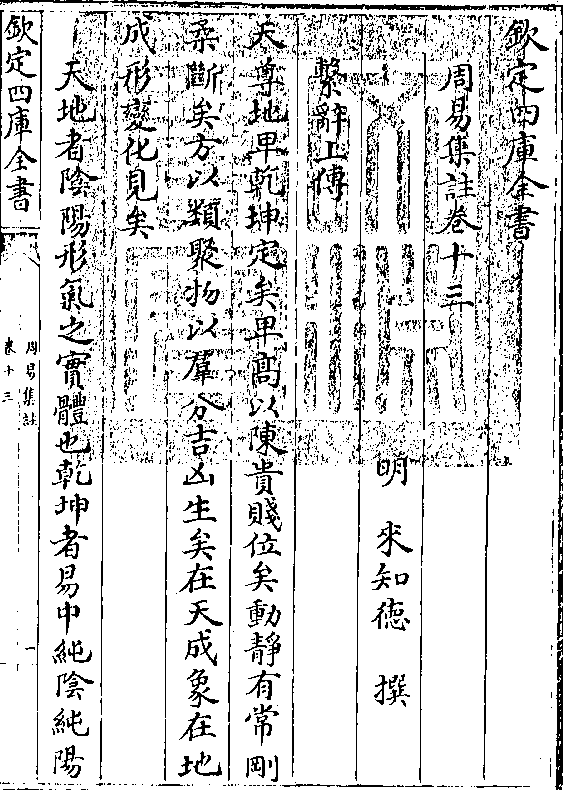 欽定四庫全書
周易集註卷十三
明 來知德 撰
繫辭上傳
天尊地卑乾坤定矣卑高以陳貴賤位矣動靜有常剛
柔斷矣方以類聚物以羣分吉凶生矣在天成象在地
成形變化見矣
天地者陰陽形氣之實體也乾坤者易中純陰純陽
欽定四庫全書
周易集註
卷十三
一